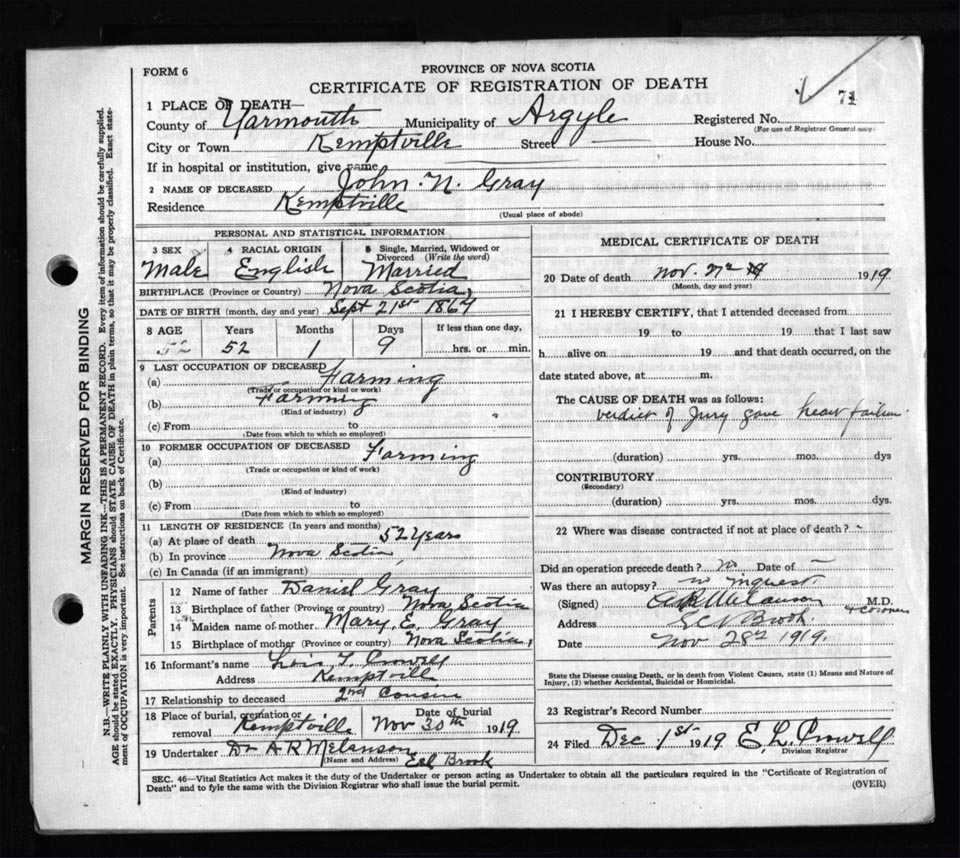 FORM 6
PROVINCE OF NOVA SCOTIA
CERTIFICATE OF REGISTRATION OF DEATH
71
1 PLACE OF DEATH—
County of Yarmouth Municipality of Argyle Registered No.
(For use of Registrar General only)
City or Town Kemptville Street House No.
If in hospital or institution, give name
2 NAME OF DECEASED John N. Gray
Residence Kemptville
(Usual place of abode)
PERSONAL AND STATISTICAL INFORMATION
3 SEX 4 RACIAL ORIGIN 5 Single, Married, Widowed or Divorced (Write the word)
Male English Married
BIRTHPLACE (Province or Country) Nova Scotia,
DATE OF BIRTH (month, day and year) Sept 21st 1867
8 AGE Years Months Days If less than one day,
52 52 1 9 hrs. or min.
9 LAST OCCUPATION OF DECEASED
(a) Farming
(Trade or occupation or kind or work)
(b) Farming
(Kind of industry)
(c) From to
(Date from which to which so employed)
10 FORMER OCCUPATION OF DECEASED
(a) Farming
(Trade or occupation or kind of work)
(b)
(Kind of industry)
(c) From to
(Date from which to which so employed)
11 LENGTH OF RESIDENCE (In years and months)
(a) At place of death 52 Years
(b) In province Nova Scotia
(c) In Canada (if an immigrant)
Parents
12 Name of father Daniel Gray
13 Birthplace of father (Province or country) Nova Scotia
14 Maiden name of mother Mary E. Gray
15 Birthplace of mother (Province or country) Nova Scotia,
16 Informant's name Crowell
Address Kemptville
17 Relationship to deceased 2nd Cousin
18 Place of burial, cremation or removal Kemptville Date of burial Nov 30th 1919
19 Undertaker Dr A R Melanson
(Name and Address) Eel Brook
MEDICAL CERTIFICATE OF DEATH
20 Date of death Nov. 1919
(Month, day and year)
21 I HEREBY CERTIFY, that I attended deceased from
19 to 19 that I last saw
h alive on 19 and that death occurred, on the
date stated above, at m.
The CAUSE OF DEATH was as follows:
verdict of Jury gave heart failure.
(duration) yrs. mos. dys
CONTRIBUTORY
(Secondary)
(duration) yrs. mos. dys.
22 Where was disease contracted if not at place of death?
Did an operation precede death? no Date of
Was there an autopsy? no inquest
(Signed) A R Melanson M.D.
& coroner
Address Brook.
Date Nov 28 1919.
State the Disease causing Death, or in death from Violent Causes, state (1) Means and Nature of
Injury, (2) whether Accidental, Suicidal or Homicidal.
23 Registrar's Record Number
24 Filed Dec 1st 1919 E. L. Crowell
Division Registrar
SEC. 46—Vital Statistics Act makes it the duty of the Undertaker or person acting as Undertaker to obtain all the particulars required in the "Certificate of Registration of
Death" and to fyle the same with the Division Registrar who shall issue the burial permit.
(OVER)
MARGIN RESERVED FOR BINDING
N.B.—WRITE PLAINLY WITH UNFADING INK—THIS IS A PERMANENT RECORD. Every item of information should be carefully supplied.
AGE should be stated EXACTLY. PHYSICIANS should STATE CAUSE OF DEATH in plain terms, so that it may be properly classified. Exact state-
ment of OCCUPATION is very important. See instructions on back of Certificate.